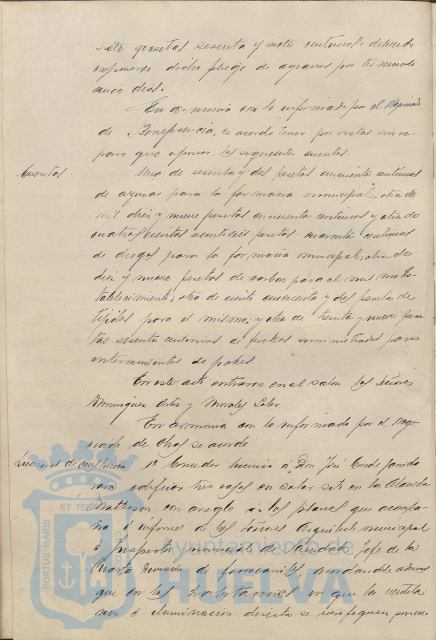 siete pesetas sesenta y siete centimos debiendo
exponerse dicho pliego de agravios por termino de
cinco dias.
En armonia con lo informado por el Negociado
de Beneficencia, se acordó tener por vistas sin re-
paro que oponer las siguientes cuentas.
Cuentas.
Una de sesenta y dos pesetas cincuenta centimos
de azucar para la farmacia municipal; otra de
mil diez y nueve pesetas cincuenta centimos y otra de
cuatrocientas veintiseis pesetas cuarenta centimos
de drogas para la farmacia municipal; otra de
diez y nueve pesetas de carbon para el mismo es-
tablecimiento; otra de ciento cincuenta y dos pesetas de
tejidos para el mismo; y otra de treinta y nueve pese-
tas sesenta centimos de suministradas para
enterramientos de pobres.
En este acto entraron en el salon los Señores
Dominguez Ortiz y Morales
En armonia con lo informado por el Nego-
ciado de Obras se acordó
Licencias de
1º Conceder licencia á Don José Conde
para edificar tres casas en solar sito en la Alameda
con arreglo á los planos que acompa-
ña é informe de los Señores Arquitecto municipal
é Jefe de la
Cuarta Division de ferrocarriles
que en las habitaciones en que la ventila-
cion é iluminacion directa se
PORTUS MARIS
ET TERRAE CUSTODIA
Ayuntamiento de
HUELVA